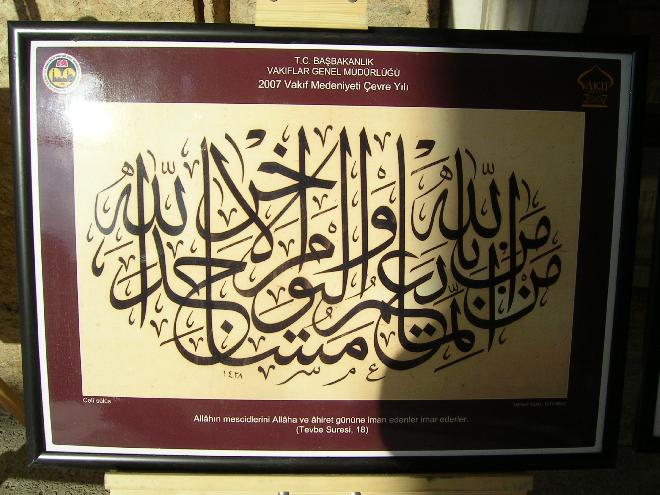 T.C. BAŞBAKANLIK
VAKIFLAR GENEL MÜDÜRLÜĞÜ
2007 Vakıf Medeniyeti Çevre Yılı
VAKIF
2007
إنما يعمر مساجد الله من آمن بالله واليوم الآخر
١٤٢٨
Celi sülüs
Allâhın mescidlerini Allâha ve âhiret gününe iman edenler imar ederler.
(Tevbe Suresi, 18)